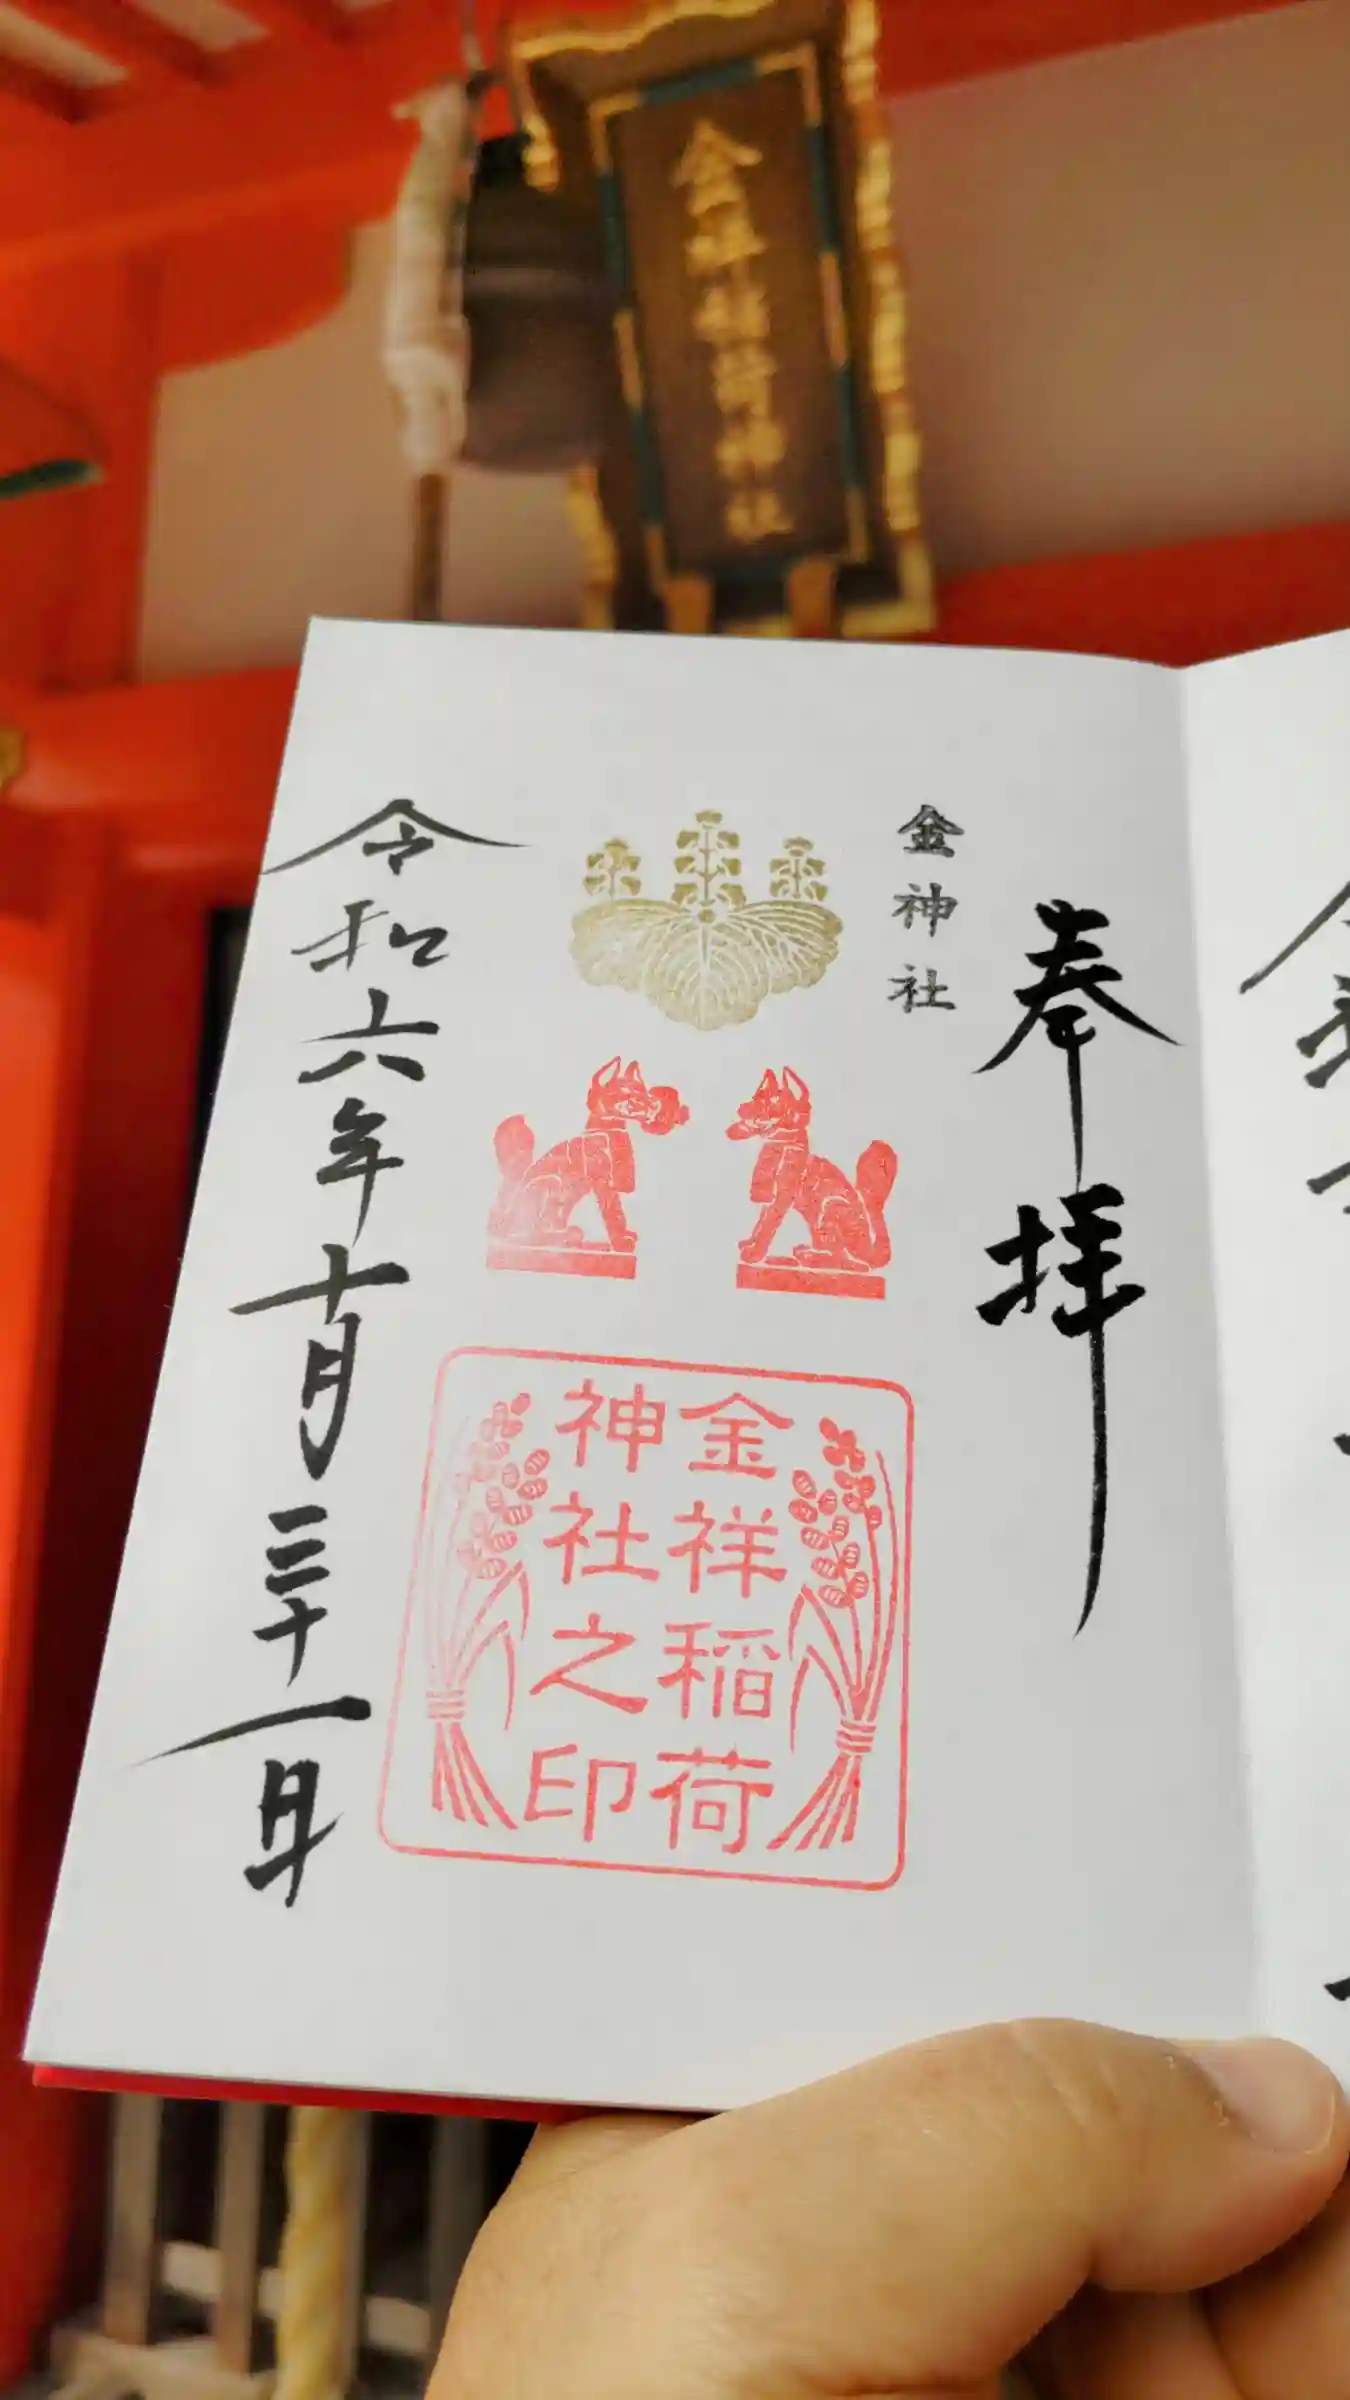 金祥稲荷神社
奉拝
金神社
金祥稲荷
神社之印
令和六年十月三十一日